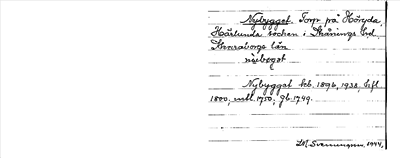 Nybygget. Torp på Höryda,
Härlunda socken i Skånings hd,
Skaraborgs län
nỳebᴏgət
Nybygget hsb. 1896, 1938, hsfl.
1800, mtl. 1750; gb. 1749.
LM. Svenungsson. 1944.